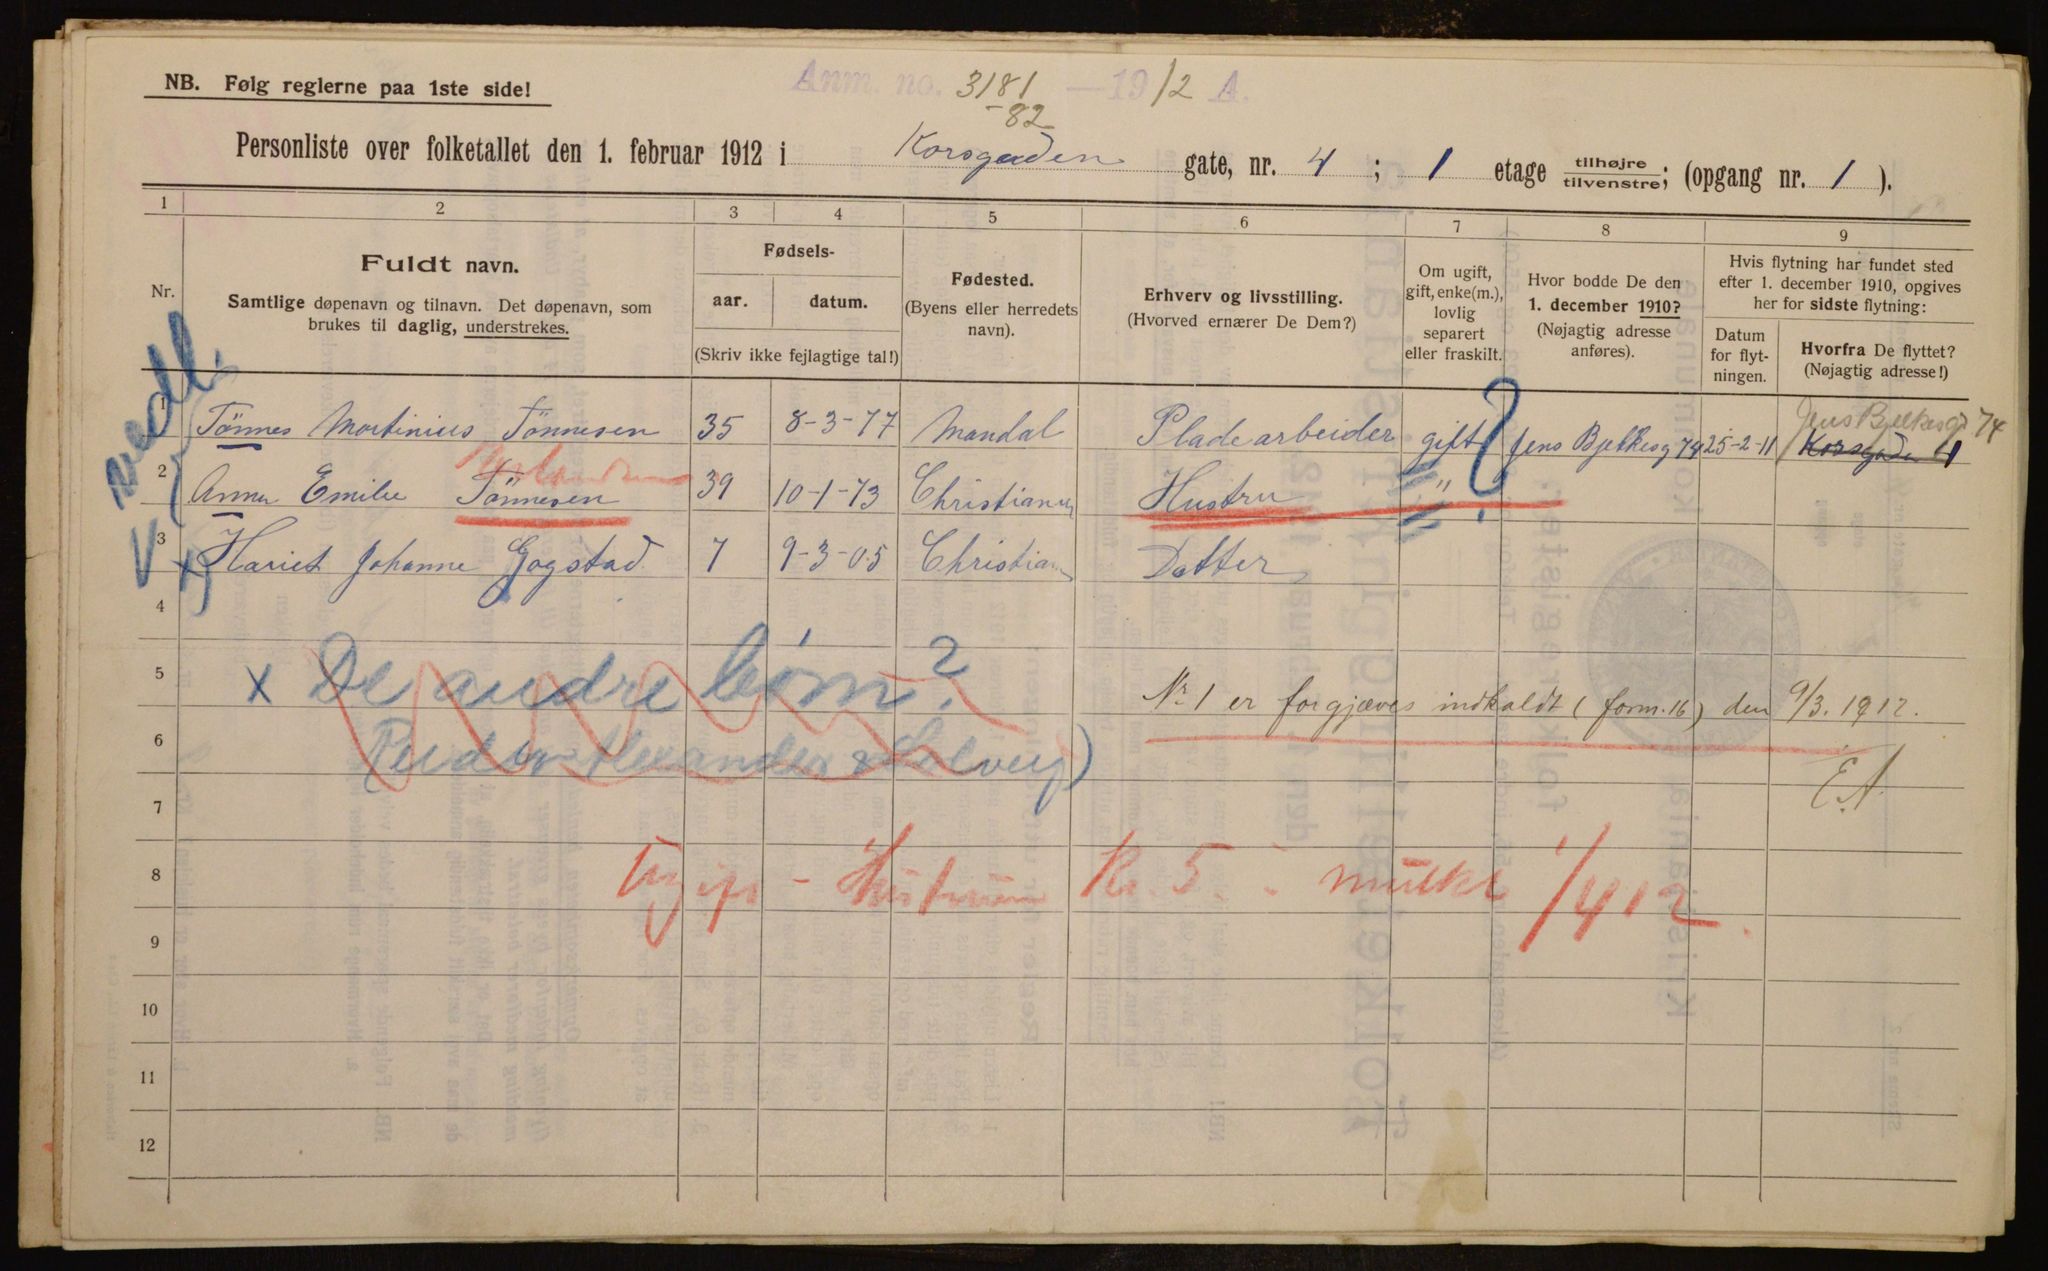 NB. Følg reglerne paa 1ste side!
Anm. no. 3181 — 1912 A.
-82
Personliste over folketallet den 1. februar 1912 i Korsgaden gate, nr. 4 ; 1 etage tilhøjre tilvenstre; (opgang nr. 1 ).
1 2 3 4 5 6 7 8 9
Nr.
Fuldt navn.
Samtlige døpenavn og tilnavn. Det døpenavn, som
brukes til daglig, understrekes.
Fødsels-
aar. datum.
(Skriv ikke fejlagtige tal!)
Fødested.
(Byens eller herredets
navn).
Erhverv og livsstilling.
(Hvorved ernærer De Dem?)
Om ugift,
gift, enke(m.),
lovlig
separert
eller fraskilt.
Hvor bodde De den
1. december 1910?
(Nøjagtig adresse
anføres).
Hvis flytning har fundet sted
efter 1. december 1910, opgives
her for sidste flytning:
Datum
for flyt-
ningen.
Hvorfra De flyttet?
(Nøjagtig adresse!)
vedl.
Jens Bjelkesgt 74
1 Tönnes Martinius Tönnesen 35 8-3-77 Mandal Pladearbeider gift ? Jens Bjelkesg 74 25-2-11 Korsgaden 4
2 Anna Emilie Tönnesen 39 10-1-73 Christiania Hustru "
3 V x Hariet Johanne Gogstad 7 9-3-05 Christiania Datter
4
5 x De andre børn?
Nr 1 er forgjæves indkaldt (form. 16) den 9/3. 1912.
6
E.A.
7
8 Ugift - Hustruen Kr. 5 i mulkt 1/4 12.
9
10
11
12